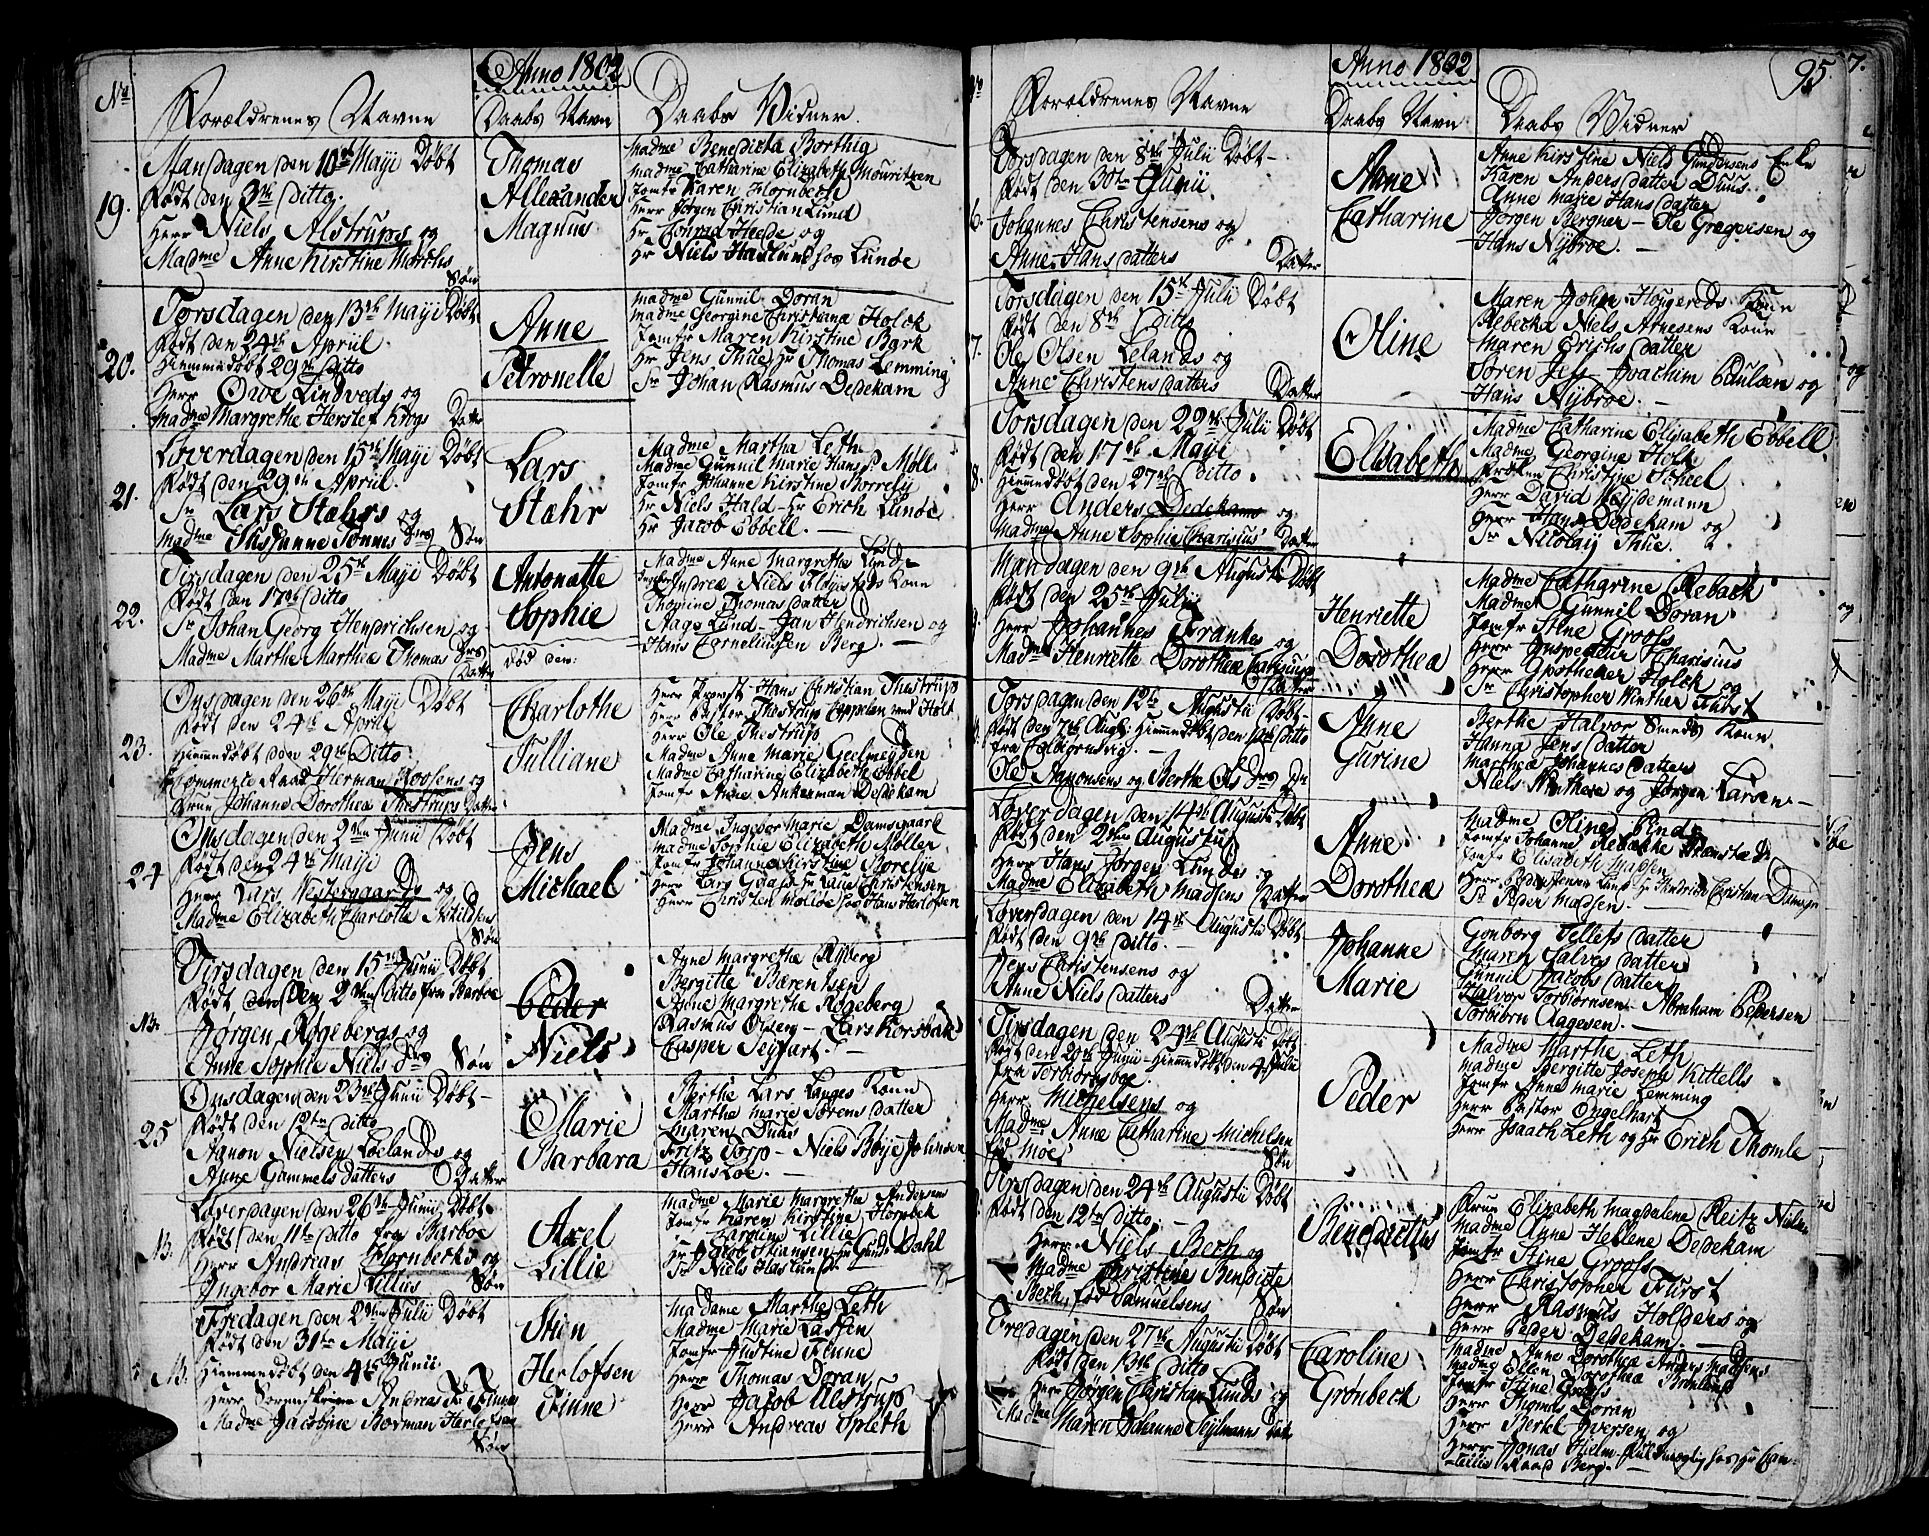 No
Anno 1802
Forældrenes Navne
Daabs Navn
Daabs Vidner.
19.
Mandagen den 10de Maji Døbt
Født den 3de Ditto.
Herr Niels Alstrups og
Madme Anne Kirstine Morchs
Søn
Thomas
Allexander
Magnus
Madme Benedicta Borthig
Madme Catharine Elizabeth Mouritzen
Jomfr Karen Hornbech
Herr Jørgen Christian Lund
Hr Conrad Heede og
Hr Niels Haslund hos Lunde
20.
Torsdagen den 13de Maji Døbt
Født den 24de April.
Hiemmedøbt 29de Ditto
Herr Owe Lindveds og
Madme Margrethe Herslef Krogs Datter
Anne
Petronelle
Madme Gunnil Doran
Madme Georgine Christiana Holck
Jomfr Maren Kirstine Bark
Hr Jens Thue, Hr Thomas Lemming
Sr Johan Rasmus Dedekam
21.
Løverdagen den 15de Maji Døbt
Født den 29de April.
Sr Lars Stæhrs og
Madme Susanne Tønnes Drs Søn
Lars
Stæhr
Madme Martha Leth
Madme Gunnil Marie Hans Sr Møll
Jomfr Johanne Kirstine
Hr Niels Hald - Hr Erich Lunde
Hr Jacob Ebbell. -
22.
Tirsdagen den 25de Maji Døbt
Født den 17de Ditto
Sr Johan Georg Hendrichsen og
Madme Marthe Marthea Thomas Drs
Datter
Antonette
Sophie
død den:
Madme Anne Margrethe Lund
Andrea Niels Konn
Thorine Thomas Datter
Aage Lund - Jan Hendrichsen og
Hans Corneliussen Berg. -
23.
Onsdagen den 26de Maji Døbt
Født den 24de April
Hiemmedøbt den 29de Ditto
Commerse Raad Herman Roosens og
Frue Johanne Dorothea Thestrups Datter
Charlothe
Julliane
Herr Provst Hans Christian Thestrup
Herr Pastor Thestrup Cappelan ved Holt
Herr Ole Thestrup
Madme Anne Marie Geelmeyden
Madme Catharine Elizabeth Ebbel
Jomfr Anne Ankerman Dedekam
24
Onsdagen den 2den Junii Døbt
Født den 24de Maji
Herr Lars Westergaards og
Madme Elizabeth Charlotte Nkildsens
Søn
Jens
Michael
Madme Ingebor Marie Damsgaard
Madme Sophie Elizabeth Møller
Jomfr Johanne Kirstine Borelie
Herr Lars Gaafs Hr Laus Christensen
Herr Christen Mollde hos Hans Herlofsen
NB.
Tirsdagen den 15de Junii Døbt
Født den 2den Ditto fra Barboe
Jørgen Røgebergs og
Anne Sophie Niels Drs Søn
Peder
Niels
Anne Margrethe Ryberg
Bergitte Bærentsen
Anne Margrethe Røgeberg
Rasmus Olsen - Lars Korsbæk
Casper Seyffart. -
25
Onsdagen den 23de Junii Døbt -
Født den 12te Ditto
Aanon Nielsen Loelands og
Anne Gammels datters Datter
Marie
Barbara
Berthe Lars Langes Konn
Marthe Marie Sørens Datter
Maren Duus
Fritz Torp - Niels Boije Johnsen
Hans Loe. -
NB.
Løverdagen den 26de Junii Døbt
Født den 11te Ditto fra Barboe
Herr Andreas Hornbechs og
Ingebor Marie Lillies Søn
Axel
Lillie
Madme Marie Margrethe Andersen
Jomfr Karen Kirstine Hornbek
Caroline Lillie
Hr Jacob Hansen Hr Gund: Dahl
Sr Niels Haslund.
NB.
Fredagen den 2den Julii Døbt
Født den 31te Maji
Hiemmedøbt den 4de Junii
Herr Andreas Finnes
Madme Jacobine Borman Herlofsen
Søn
Stien
Herlofsen
Finne
Madame Marthe Leth
Madme Marie Lassen
Jomfr Justine Finne
Herr Thomas Doran
Herr Jacob Alstrup
Herr Andreas Spleth
No
Anno 1802
95
Forældrenes Navne
Daabs Navn
Daabs Vidner
6.
Torsdagen den 8de Julii Døbt -
Født den 30te Junii
Johannes Christensens og
Anne Hans datters Datter
Anne
Catharine
Anne Kirstine Niels Gundersens Enke
Karen Anders datter Duus
Anne Marie Hans datter
Jørgen Bergner - Ole Gregersen og
Hans Nybroe. -
7.
Torsdagen den 15de Julii Døbt
Født den 8de Ditto
Ole Olsen Lelands og
Anne Christens datters Datter
Oline
Maren John Hougereds Konn
Rebecka Niels Arnesens Konn
Maren Erichs datter
Søren Joachim Paulsen og
Hans Nybroe. -
8.
Torsdagen den 22de Julii Døbt
Født den 17de Maji
Hiemmedøbt den 27de Ditto
Herr Anders Dedekams og
Madme Anne Sophie Charisius Datter
Elisabeth
Madme Catharine Elisabeth Ebbell.
Madme Georgine Holk
Frøken Christine Scheel
Herr David Weydemann
Herr Hans Dedekam og
Sr Nicolay Thue.
Mandagen den 9de Augusti Døbt
Født den 25de Julii
Herr Johannes Frankes og
Madme Henriette Dorothea Charisius
Datter
Henriette
Dorothea
Madme Catharine Reback
Madme Gunnil Doran
Jomfr Stine Grooss
Herr Inspecteur Charisius
Herr Apotheker Holck og
Sr Christopher Winther Fürst
Torsdagen den 12te Augusti Døbt -
Født den 7de Aug: Hiemmedøbt den Ditto
fra Colbjørnsvig. -
Ole Aanonsens og Berthe Ols Drs Dr
Anne
Gurine
Berthe Halvor Smeds Konn
Hanna Jens Datter
Marthea Johannes Datter
Niels Winther og Jørgen Larsen -
Løverdagen den 14de Augusti Døbt
Født den 2den Augustus
Herr Hans Jørgen Lundes og
Madme Elizabeth Madsens Datter
Anne
Dorothea
Madme Oline Lind
Jomfr Johanne Rebække
Jomfr Elisabeth Madsen
Sr Peder Madsen. -
Løverdagen den 14de Augusti Døbt
Født den 9de Ditto. -
Jens Christensens og
Anne Niels Datters Datter
Johanne
Marie
Gonborg Tellefs Datter
Maren Salves Datter
Gunnil Jacobs Datter
Halvor Torbiørnsen - Abraham Pedersen
Torbiørn Aagesen. -
Tirsdagen den 24de Augusti Døbt
Født den 29de Junii - Hiemmedøbt den 4de Julii
fra Torbiørnsboe.
Herr Michelsens og
Madme Anne Catharine Michelsen
fød Moe. Søn
Peder
Madme Marthe Leth
Madme Bergitte Joseph Kittells
Jomfr Anne Marie Lemming
Herr Pastor Engelhart
Herr Isaach Leth og Hr Erich Thomle
Tirsdagen den 24de Augusti Døbt
Født den 12te Ditto. -
Herr Niels Bech og
Madme Christine Bendicte
Bech, fød Samuelsens Søn
Benedictus
Frue Elizabeth Magdalene Reitz Nielsen
Madme Anne Hellene Dedekam
Jomfr Stine Grooss
Herr Christopher Fürst
Herr Rasmus Holders og
Herr Peder Dedekam. -
Fredagen den 27de Augusti Døbt
Født den 13de Ditto
Herr Jørgen Christian Lunds og
Madme Maren Johanne Sejlmanns Datter
Caroline
Grønbeck
Madme Anne Dorothea Anders Madsens
Madme Ellen Dorothea Brønlund
Jomfr Stine Grooss
Herr Thomas Doran
Herr Bertel Iversen og
Herr Jonas Hielm. Fuldmægtig hos Hr Can-
cellie Raad Berg. -